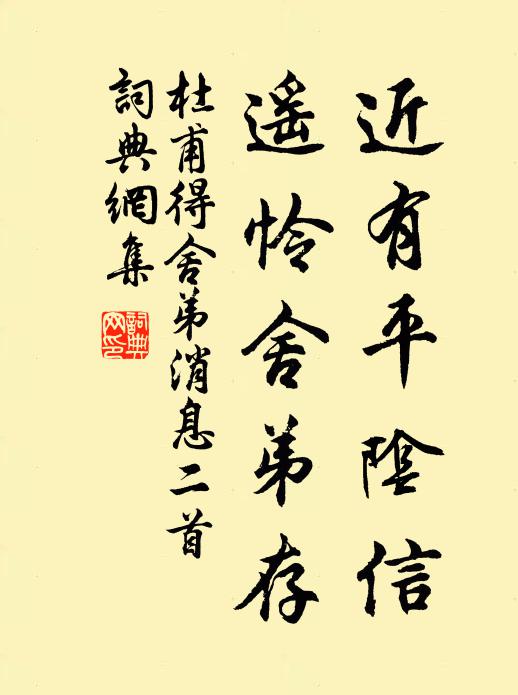 近有平陰信
遥怜舍弟存
杜甫得舍弟消息二首
詞典網集
詞典網印